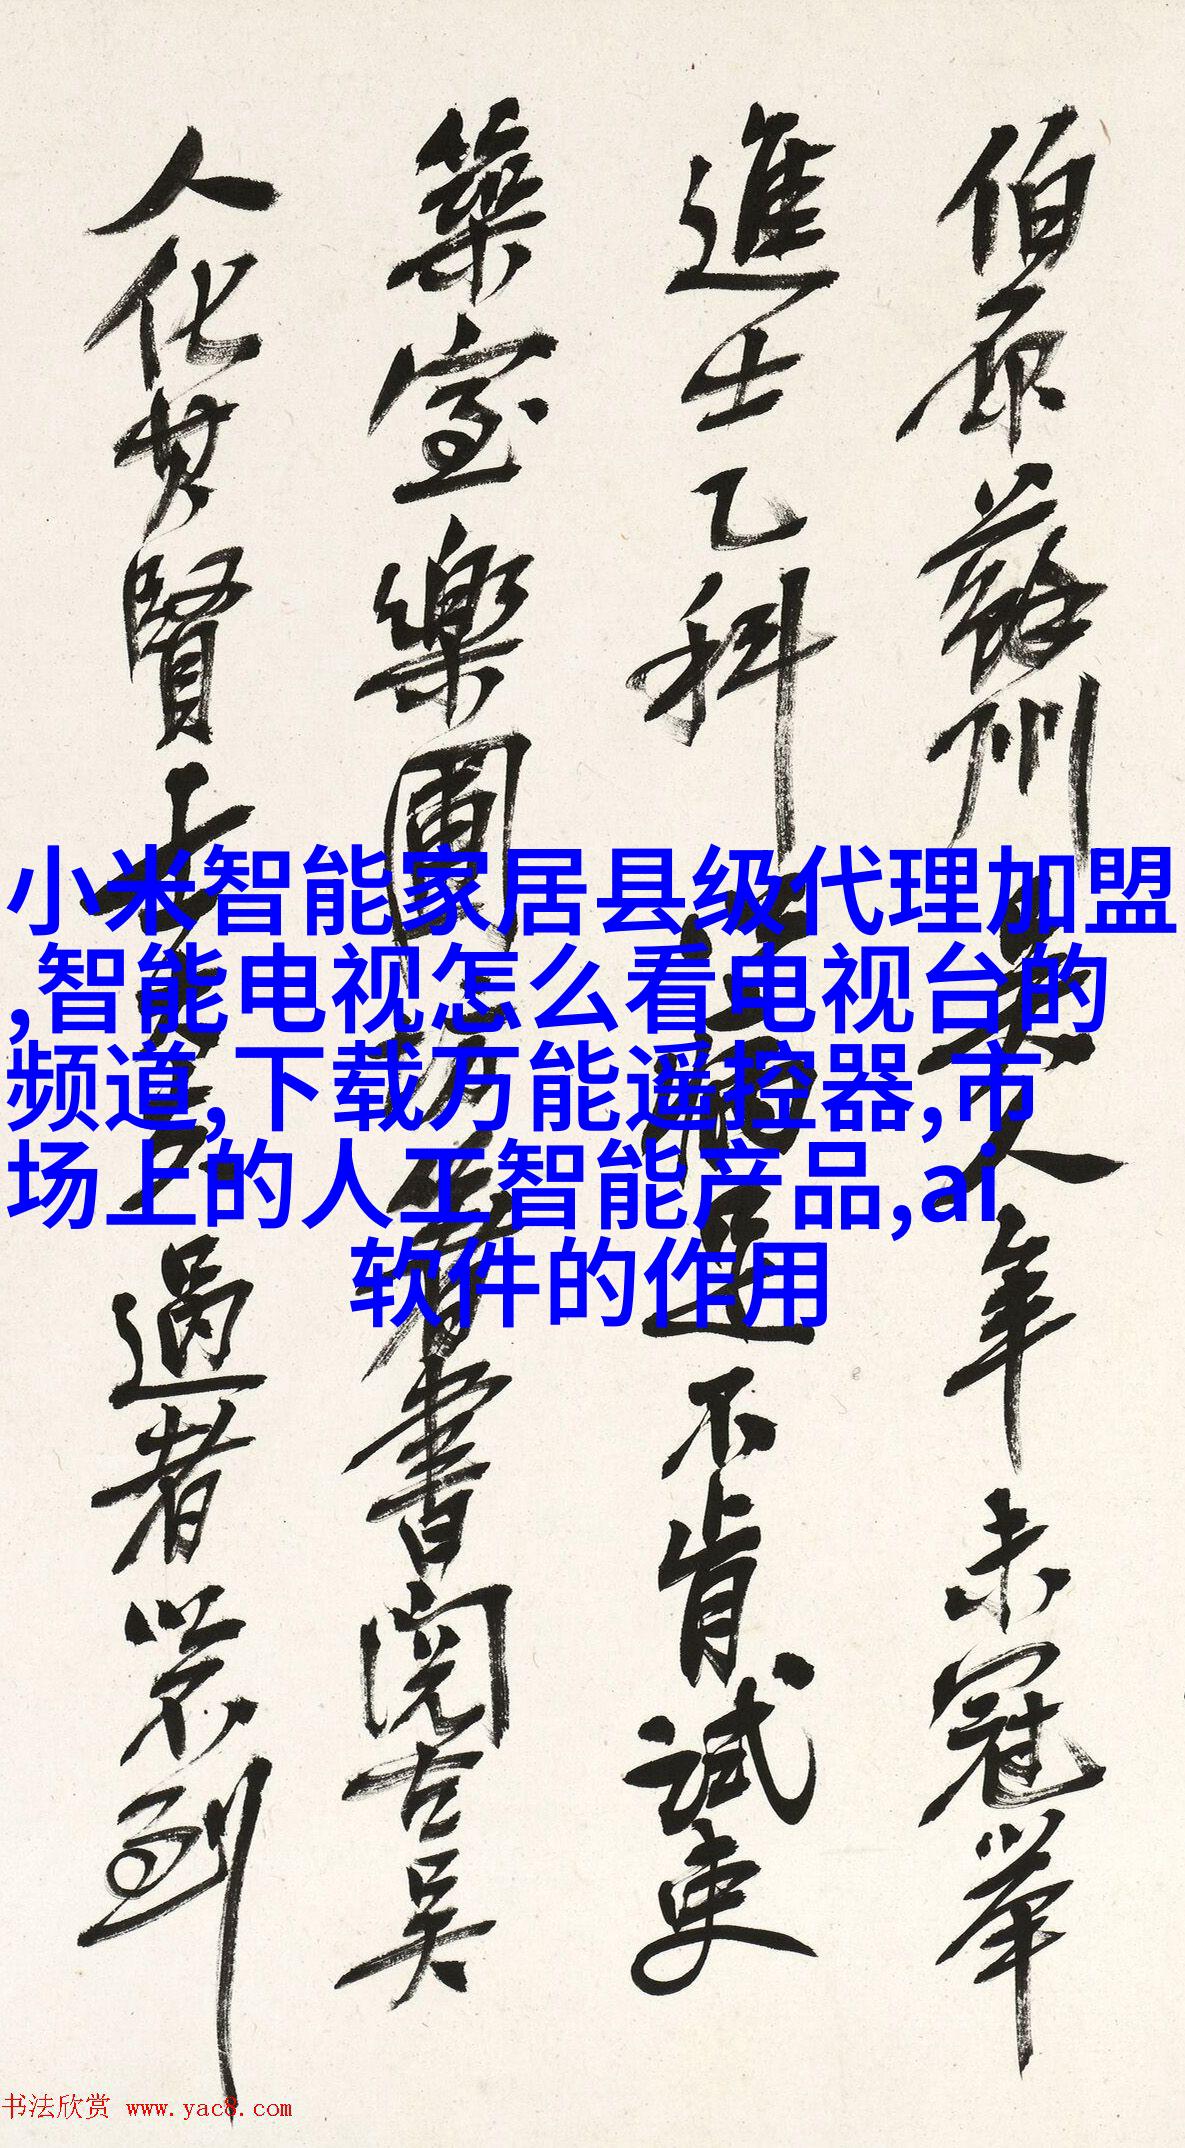 小米智能家居县级代理加盟
,智能电视怎么看电视台的
频道,下载万能遥控器,市
场上的人工智能产品,ai
软件的作用
伯原蘇州吳人年未冠舉
進士乙科足不肯試吏
築室樂圃坊著書閱古吳
人化其賢士過者以不到
书法欣赏 www.yac8.com